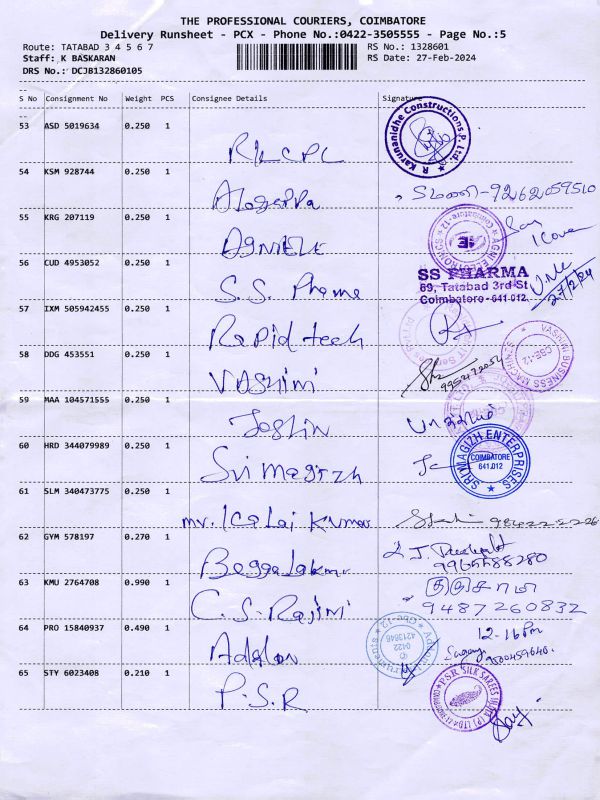 THE PROFESSIONAL COURIERS, COIMBATORE
Delivery Runsheet - PCX - Phone No.:0422-3505555 - Page No.:5
Route: TATABAD 3 4 5 6 7 RS No.: 1328601
Staff: K BASKARAN RS Date: 27-Feb-2024
DRS No.: DCJB132860105
S No Consignment No Weight PCS Consignee Details Signature
53 ASD 5019634 0.250 1
R Karunanidhe Constructions P. Ltd.
RKCPL
54 KSM 928744 0.250 1
Alagappa - 9262059510
55 KRG 207119 0.250 1
AGNIELE
56 CUD 4953052 0.250 1
SS PHARMA
69, Tatabad 3rd St
Coimbatore-641 012.
27/2/24
S.S. Pharma
57 IXM 505942455 0.250 1
Rapid tech
58 DDG 453551 0.250 1
VASHINI BUSINESS MACHINES
CBE-12
VASHINI
59 MAA 104571555 0.250 1
Joslin
60 HRD 344079989 0.250 1
SRI MAGIZH ENTERPRISES
COIMBATORE
641.012
Sri Magizh
61 SLM 340473775 0.250 1
mr. Kalai Kumar
62 GYM 578197 0.270 1
9965588280
63 KMU 2764708 0.990 1
C.S. Rajini 9487260832
64 PRO 15840937 0.490 1
12-16pm
0422
4213846
9500459646.
65 STY 6023408 0.210 1
P.S.R SILK SAREES INDIA (P) LTD
P.S.R